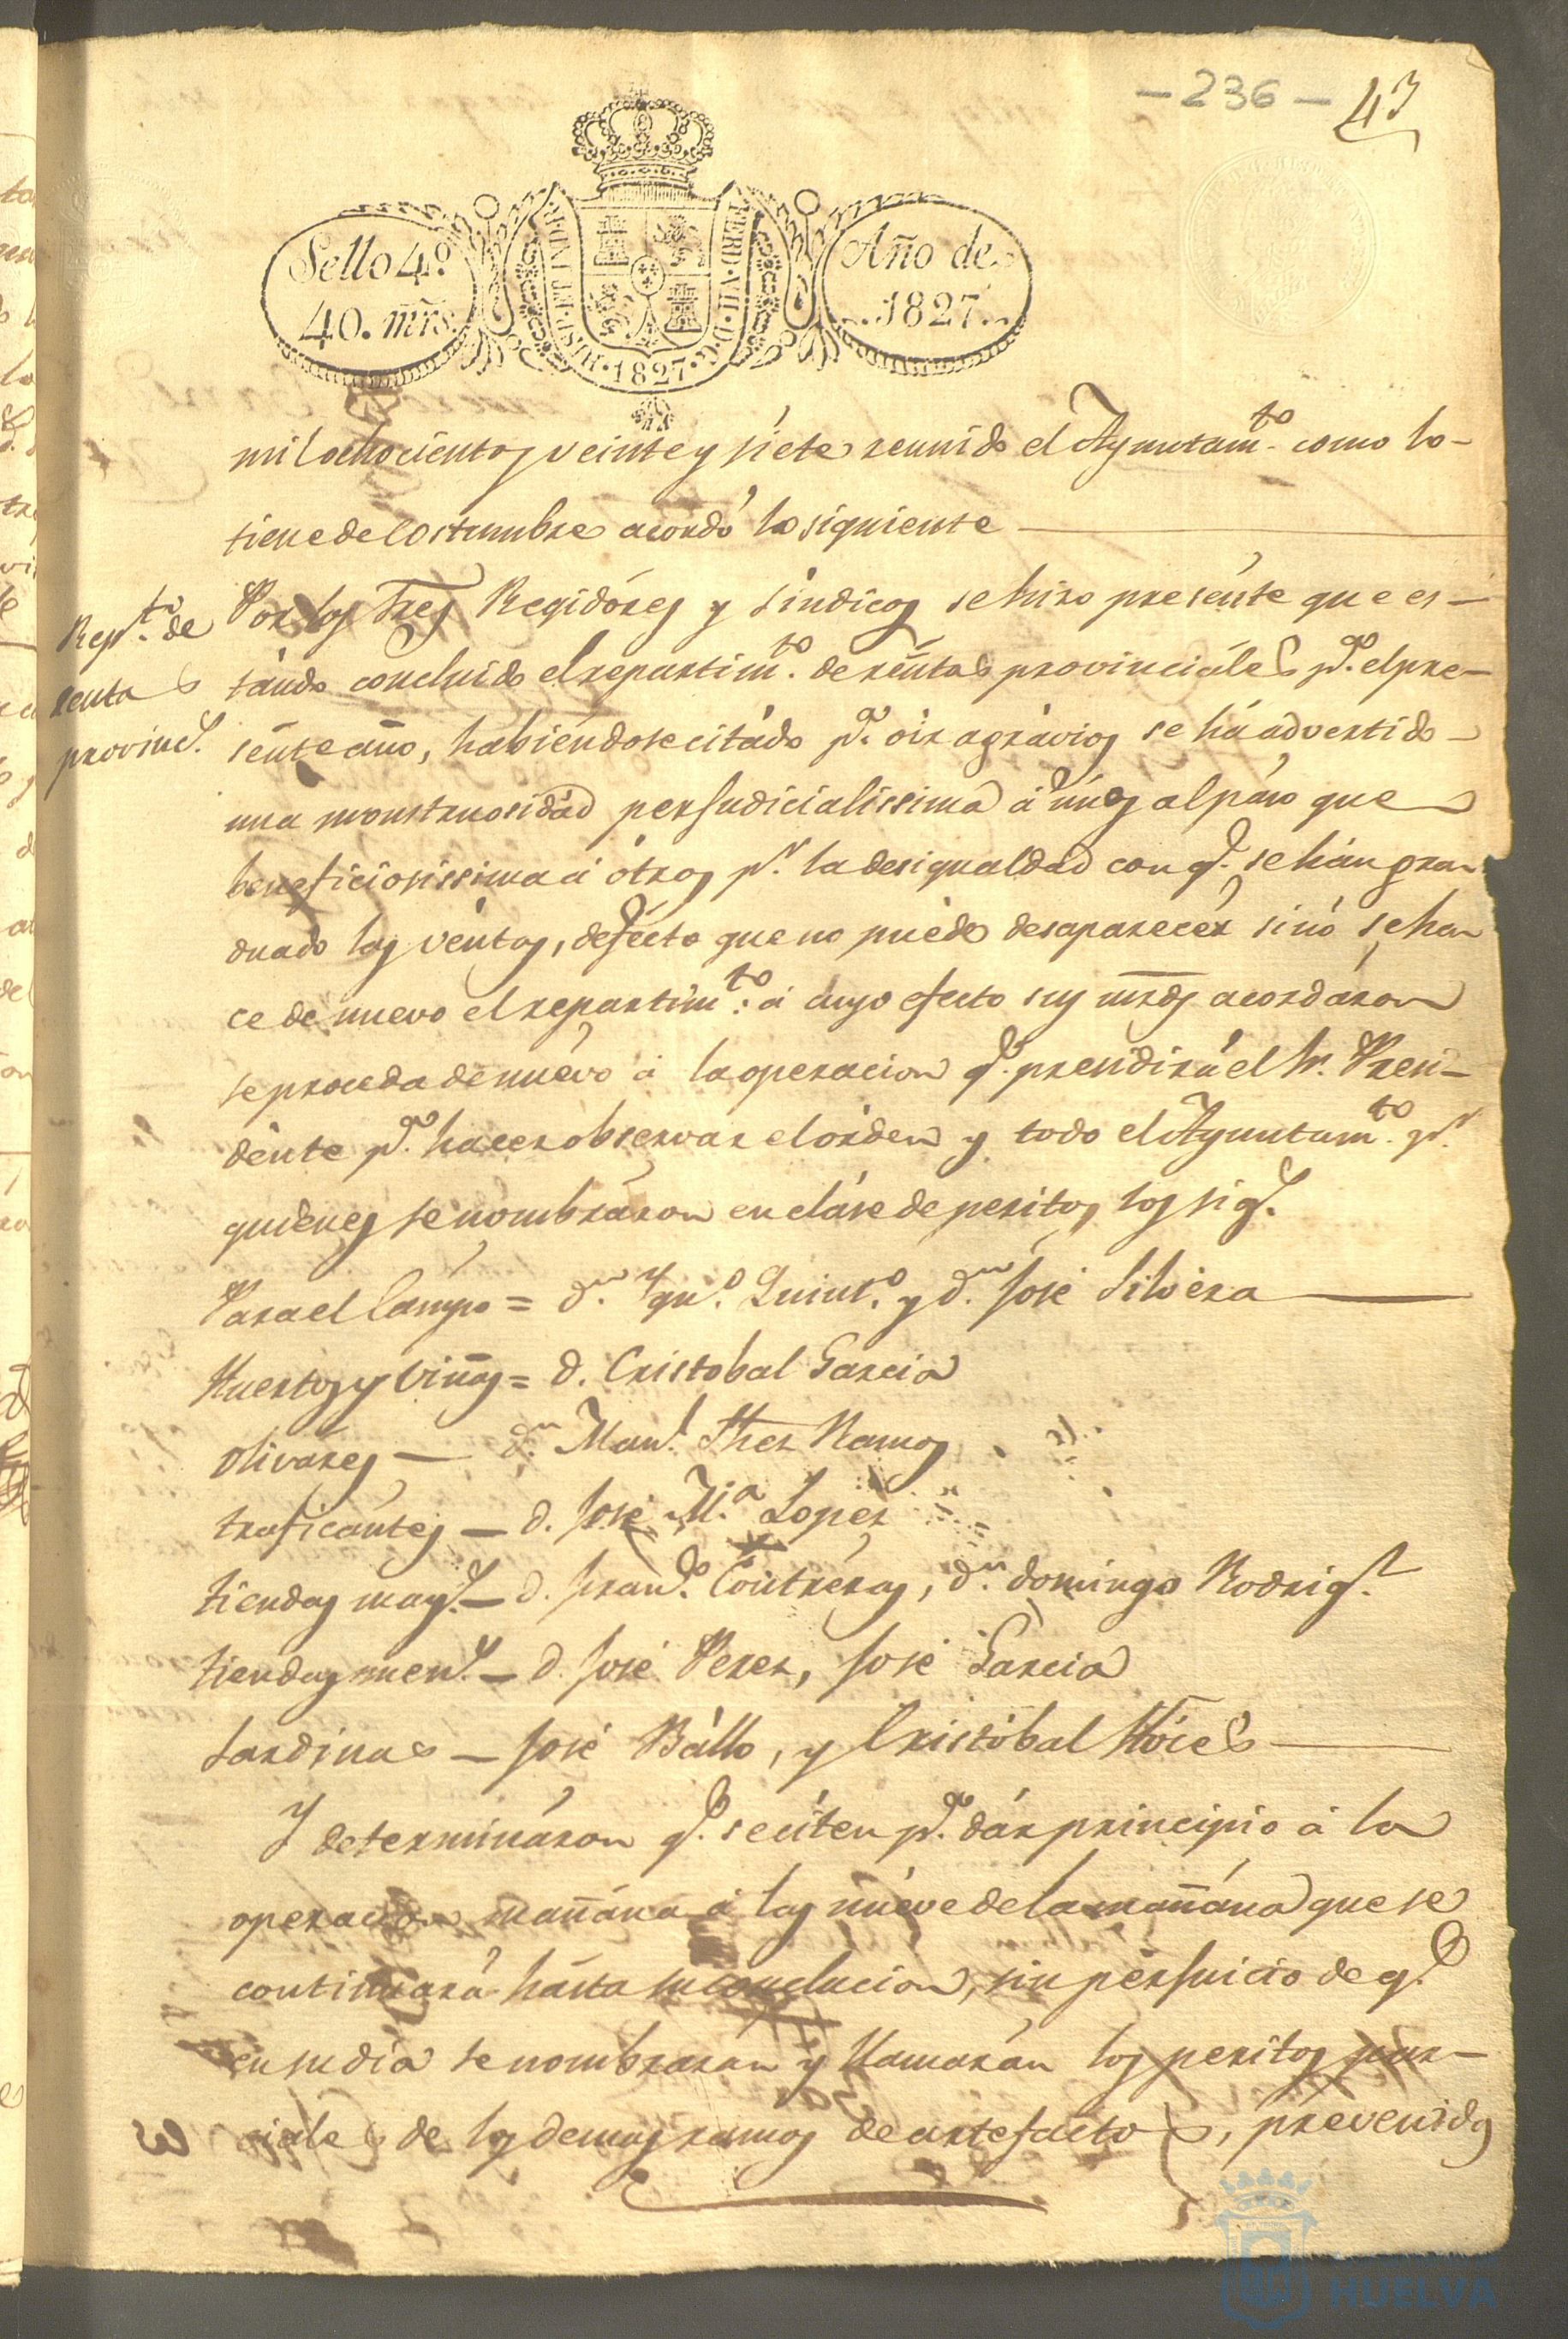 – 236 – 43
Sello 4º.
40. mrs.
HISP. ET IND. R.
FERD. VII. D. G.
· 1827 ·
Año de
1827.
mil ochocientos veinte y siete reunido el Ayuntamto. como lo-
tiene de Costumbre acordó lo siguiente
Repto. de
rentas
provincs.
Por los Tres Regidóres y Síndicos se hizo presénte que es-
tándo concluido el repartimto. de rentas provinciáles pa. el pre-
sente año, habiéndose citádo pa. óir agrávios se há advertido
una monstruosidád perjudicialissima á únos al páso que
beneficiosissima á ótros pr. la desigualdad con qe. se hán gra-
duado las véntas, defécto que no puéde desaparecér sinó se ha-
ce de nuevo el repartimto.: á cuyo efecto sus mrds. acordáron
se proceda de nuévo á la operacion qe. presidirá el Sr. Presi-
dénte pa. hacer observar el órden y todo el Ayuntamto. pr.
quiénes se nombráron en cláse de peritos los sigs.
Para el Campo = dn. Ygno. Quinto. y dn. José Silvéra
Huertos y Viñas = d. Cristobal Garcia
Olivares — dn. Manl. Fhez Ramos
traficántes — d. José Ma. Lopez
tiendas mays. — d. Franco. Contréras, dn. domingo Rodrigz.
tiendas mens. — d. José Perez, José Garcia
Sardinas — José Bállo, y Cristóbal Hoces
Y determináron qe. se citen pa. dár principio á la
operacion mañána á las nuéve de la mañána que se
continuará hásta su conclucion, sin perjuicio de qe.
en su dia se nombraran y llamarán los peritos par-
ciales de los demas ramos de artefactos, prevenidos
HUELVA